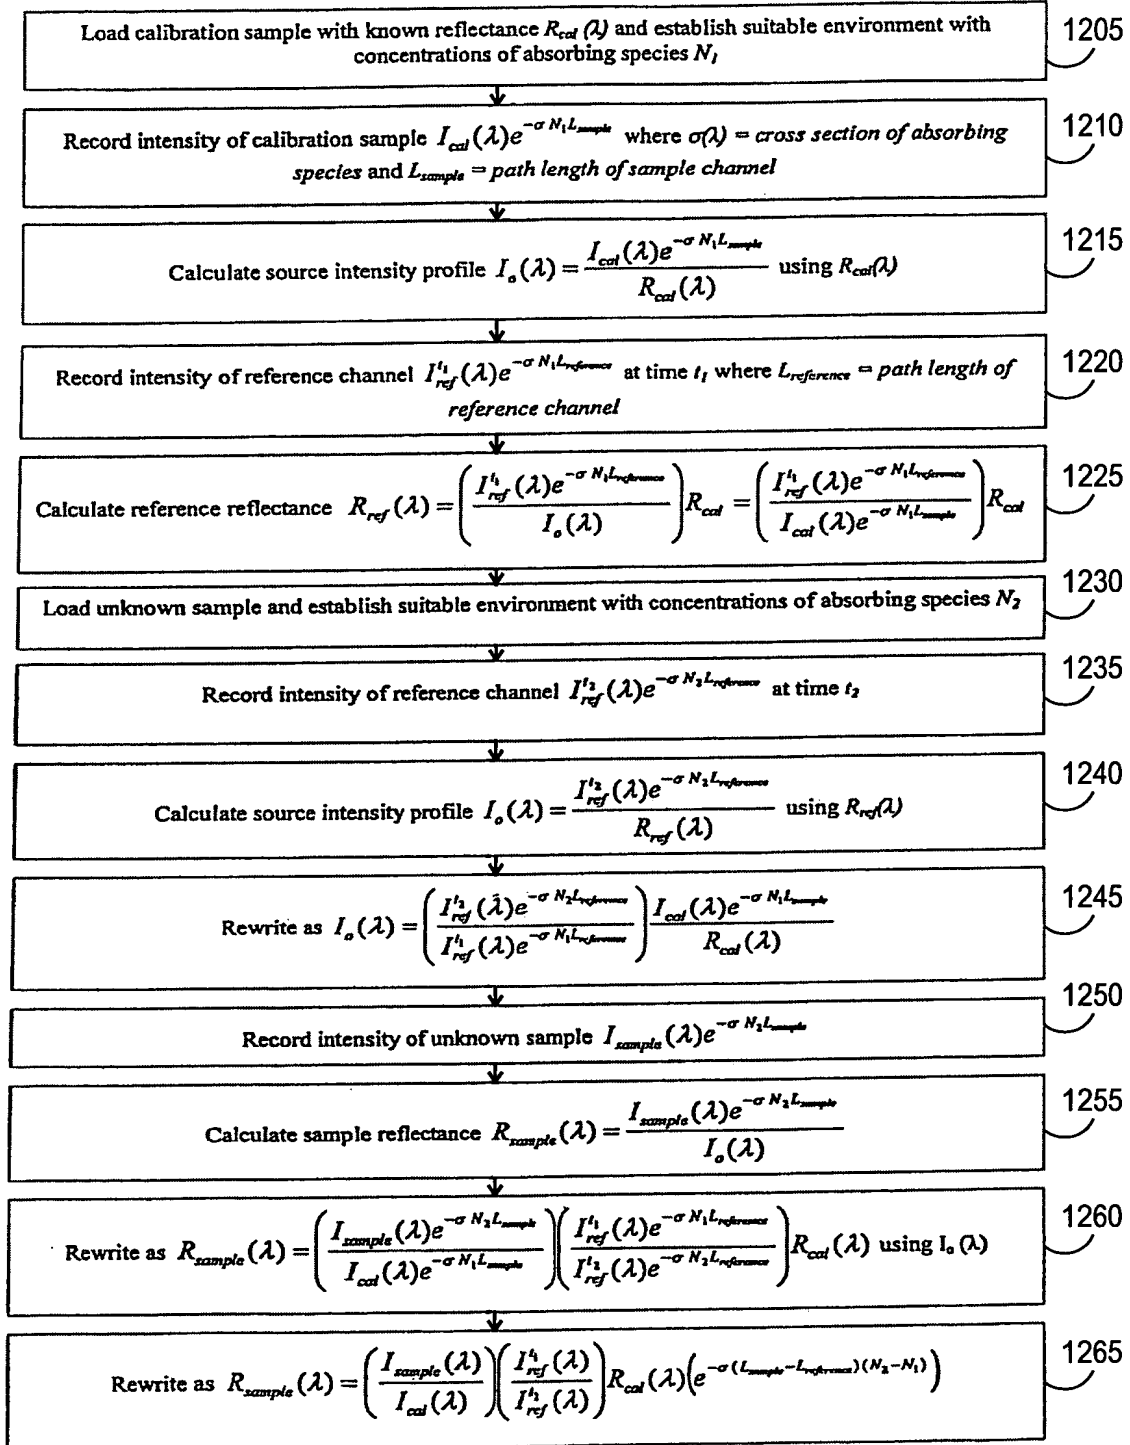 Load calibration sample with known reflectance R_cal (λ) and establish suitable environment with
concentrations of absorbing species N_1
1205
Record intensity of calibration sample I_cal(λ)e^{-σ N_1 L_sample} where σ(λ) = cross section of absorbing
species and L_sample = path length of sample channel
1210
Calculate source intensity profile I_o(λ) = \frac{I_cal(λ)e^{-σ N_1 L_sample}}{R_cal(λ)} using R_cal(λ)
1215
Record intensity of reference channel I_ref^{t_1}(λ)e^{-σ N_1 L_reference} at time t_1 where L_reference = path length of
reference channel
1220
Calculate reference reflectance R_ref(λ) = (\frac{I_ref^{t_1}(λ)e^{-σ N_1 L_reference}}{I_o(λ)}) R_cal = (\frac{I_ref^{t_1}(λ)e^{-σ N_1 L_reference}}{I_cal(λ)e^{-σ N_1 L_sample}}) R_cal
1225
Load unknown sample and establish suitable environment with concentrations of absorbing species N_2
1230
Record intensity of reference channel I_ref^{t_2}(λ)e^{-σ N_2 L_reference} at time t_2
1235
Calculate source intensity profile I_o(λ) = \frac{I_ref^{t_2}(λ)e^{-σ N_2 L_reference}}{R_ref(λ)} using R_ref(λ)
1240
Rewrite as I_o(λ) = (\frac{I_ref^{t_2}(λ)e^{-σ N_2 L_reference}}{I_ref^{t_1}(λ)e^{-σ N_1 L_reference}}) \frac{I_cal(λ)e^{-σ N_1 L_sample}}{R_cal(λ)}
1245
Record intensity of unknown sample I_sample(λ)e^{-σ N_2 L_sample}
1250
Calculate sample reflectance R_sample(λ) = \frac{I_sample(λ)e^{-σ N_2 L_sample}}{I_o(λ)}
1255
Rewrite as R_sample(λ) = (\frac{I_sample(λ)e^{-σ N_2 L_sample}}{I_cal(λ)e^{-σ N_1 L_sample}})(\frac{I_ref^{t_1}(λ)e^{-σ N_1 L_reference}}{I_ref^{t_2}(λ)e^{-σ N_2 L_reference}}) R_cal(λ) using I_o(λ)
1260
Rewrite as R_sample(λ) = (\frac{I_sample(λ)}{I_cal(λ)})(\frac{I_ref^{t_1}(λ)}{I_ref^{t_2}(λ)}) R_cal(λ)(e^{-σ(L_sample-L_reference)(N_2-N_1)})
1265